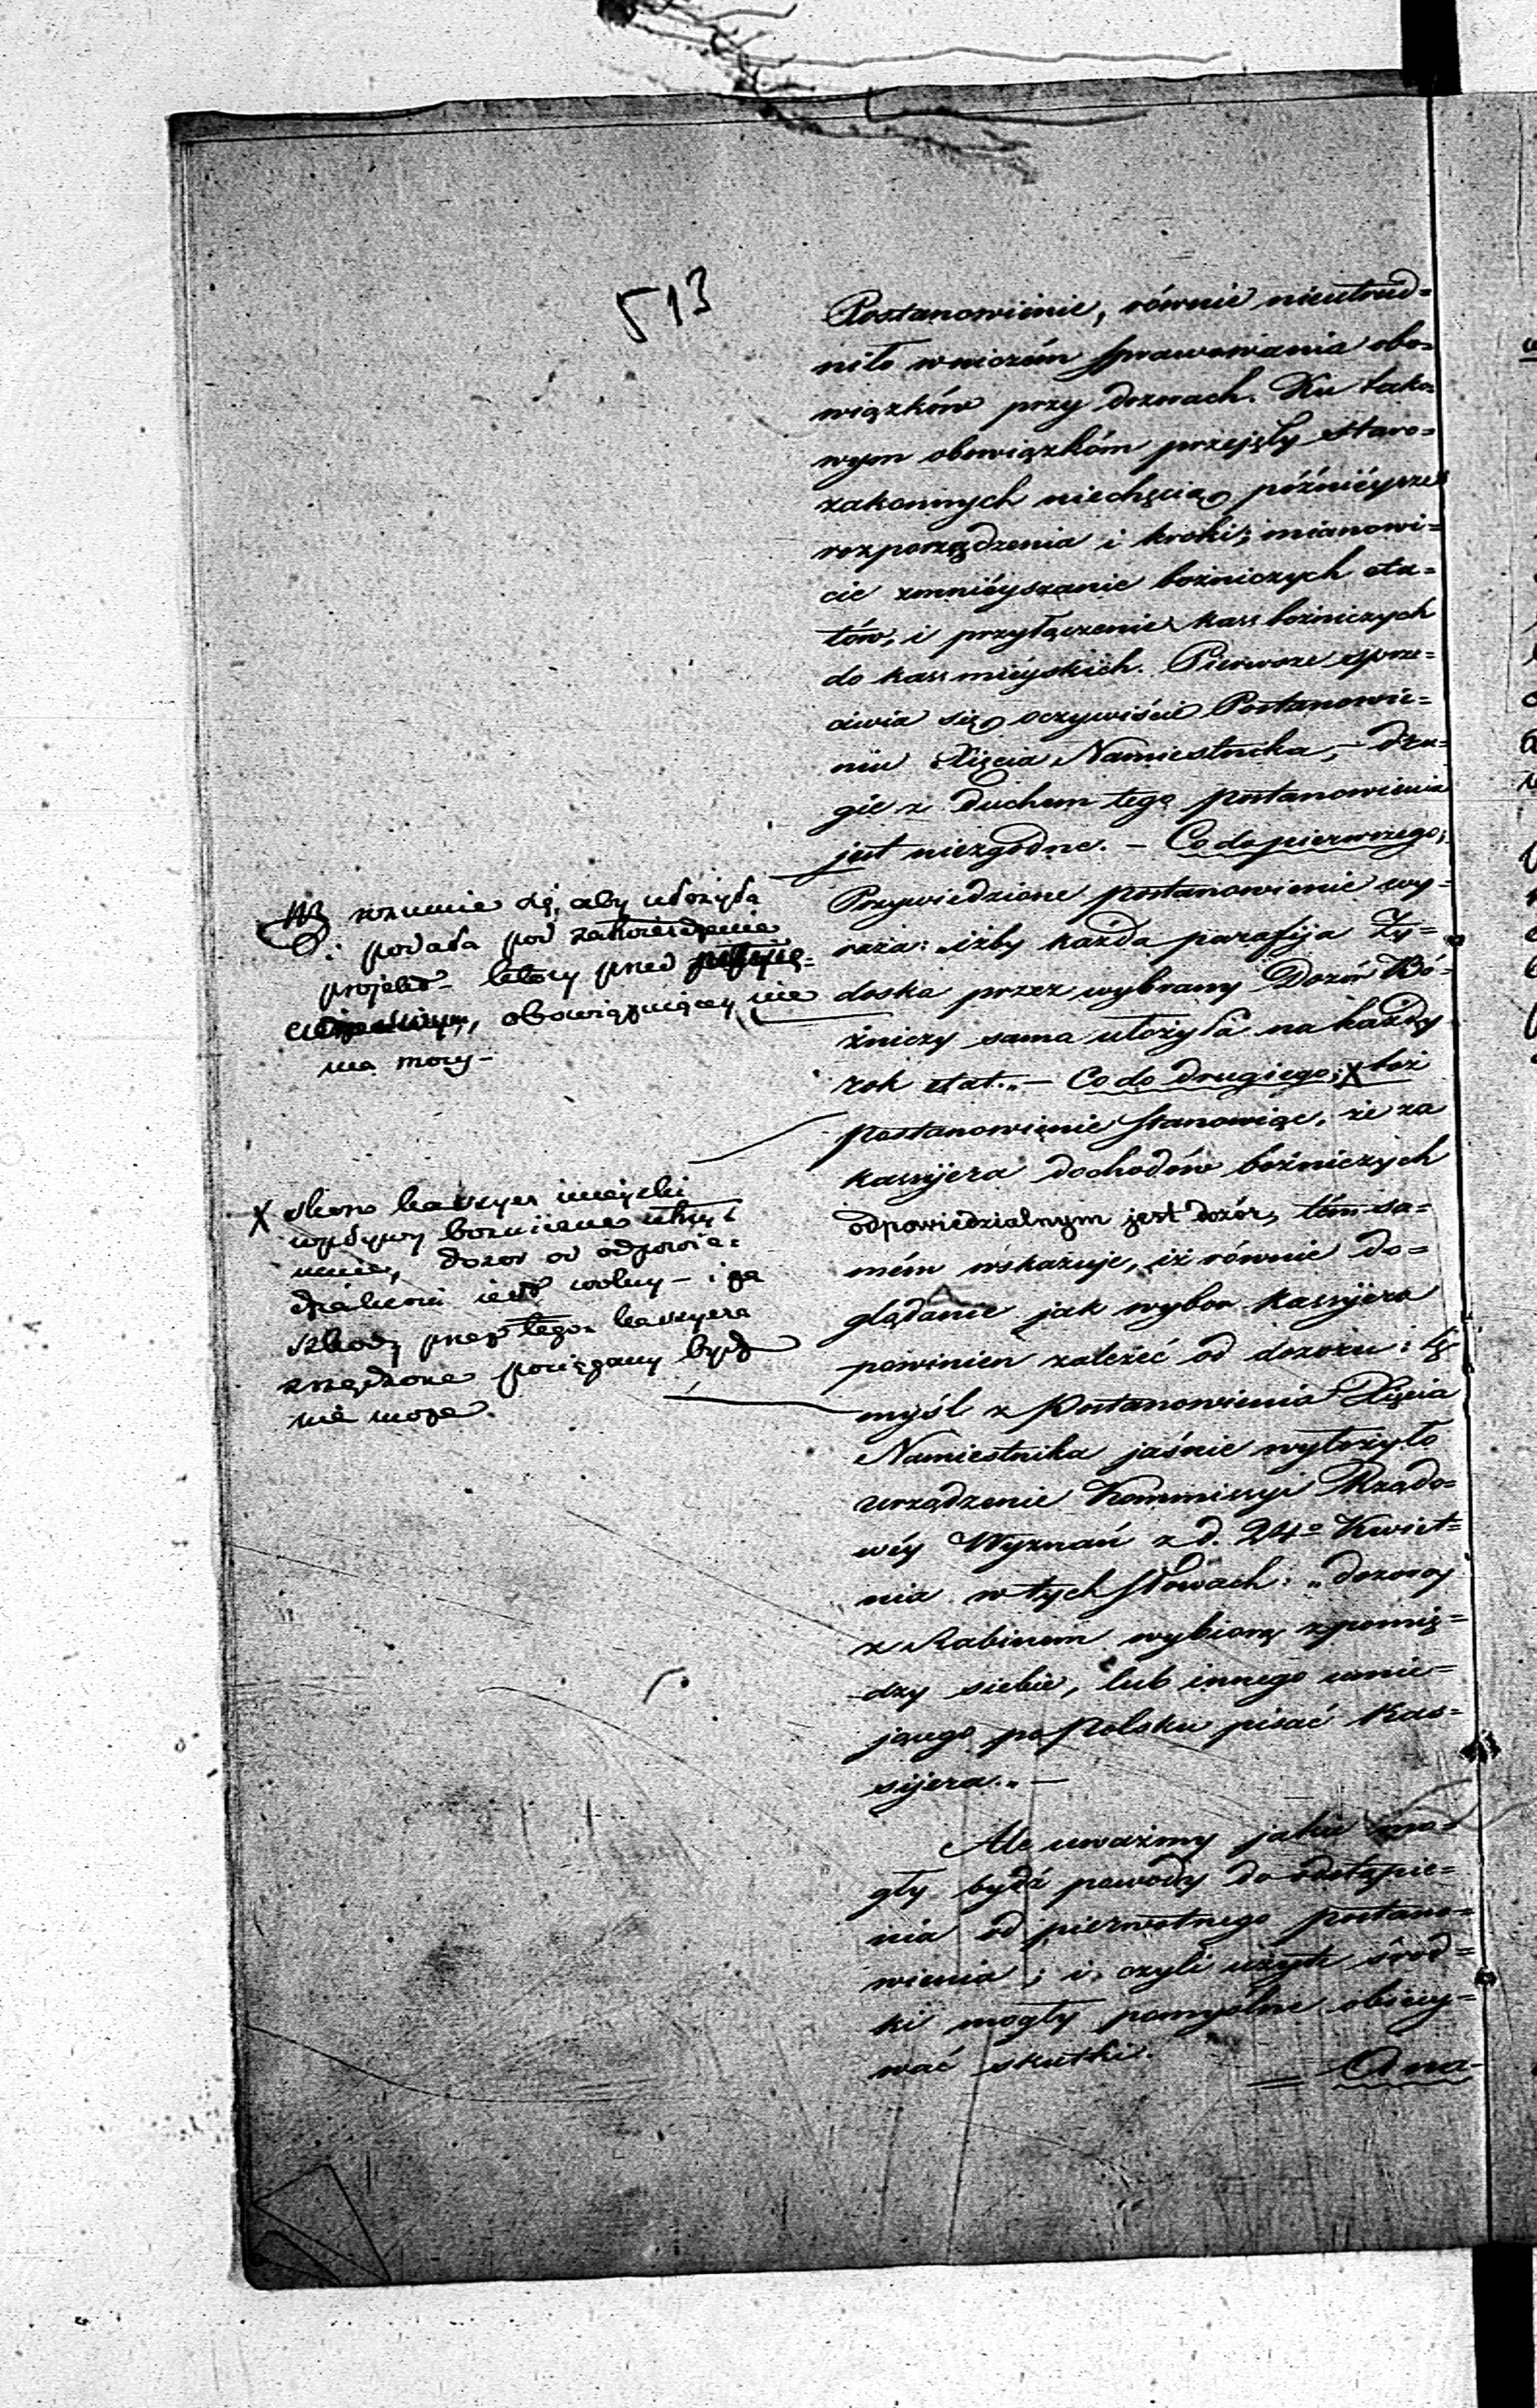 513
Postanowienie, równie nieutrud=
niło w niczém sprawowania obo=
wiązków przy dozorach. Ku tako=
wym obowiązkóm przejęły staro=
zakonnych niechęcią późniéysze
rozporządzenia i kroki; mianowi=
cie zmniéyszanie bożniczych eta=
tów, i przyłączenie kass bożniczych
do kass miéyskich. Pierwsze sprze=
ciwia się oczywiście Postanowie=
niu Xięcia Namiestnika, – dru=
gie z duchem tego postanowienia
jest niezgodne. – Co do pierwszego;
Przywiedzione postanowienie wy=
raża: iżby każda parafija Ży=
doska przez wybrany Dozór Bó=
żniczy sama ułożyła na każdy
rok etat. „ – Co do drugiego; X toż
postanowienie stanowiąc, że za
kassyjera dochodów bożniczych
odpowiedzialnym jest dozór, tém sa=
mém wskazuje, iż równie do=
glądanie jak wybór kassyjera
powinien zależeć od dozoru: tę
myśl z Postanowienia Xięcia
Namiestnika jaśnie wyłożyło
urządzenie Kommissyi Rządo=
wéy Wyznań z d. 24º Kwiet=
nia w tych słowach: „dozory
z Rabinem wybiorą z pomię=
dzy siebie, lub innego umie=
jącego po Polsku pisać Kas=
sijera.„ –
Ale uważmy jakie mo=
gły bydź powody do odstąpie=
nia od pierwotnego postano=
wienia; i, czyli użyte śród=
ki mogły pomyślne obiecy=
wać skutki.
= A na-
rozumie się, aby ułożyła
i podała pod zatwierdzenie
projekt – który przed
obowiązującey nie
ma mocy –
X skoro kassyer mieyski
wpływy bożnicze
dozor od odpowie=
dzialności iest wolny – i za
szkody przez tego kassyera
zrządzone pociągany bydź
nie może.